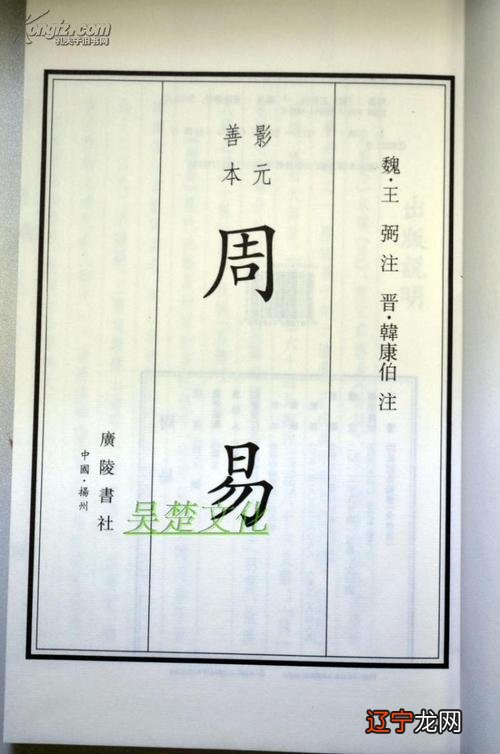 Kongfz.com
孔夫子旧书网
魏·王弼注 晋·韓康伯注
影元
善本
周易
廣陵書社
中國·揚州
吴楚文化
辽宁龙网